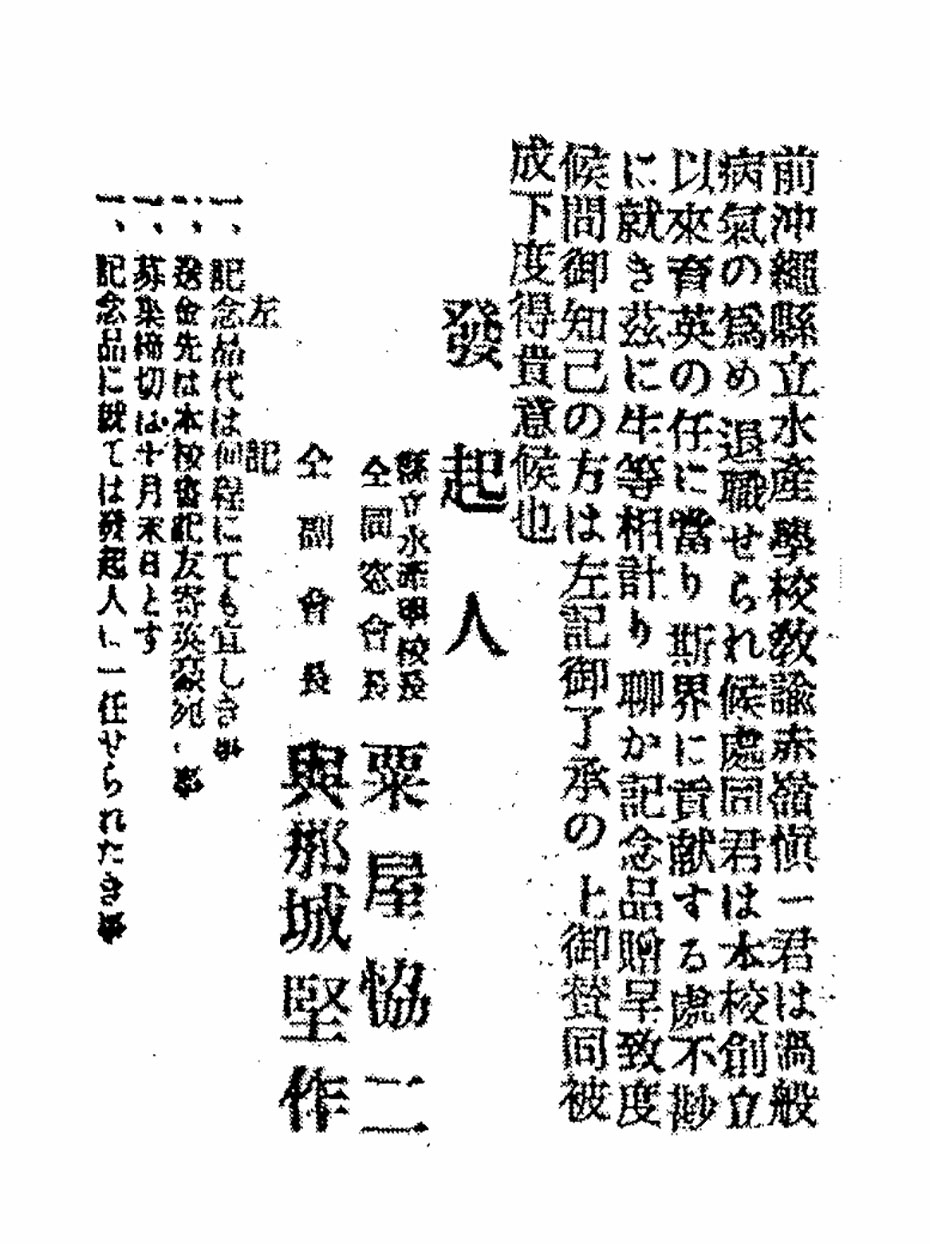 前沖繩縣立水產學校敎諭赤嶺愼一君は過般
病氣の爲め退職せられ候處同君は本校創立
以來育英の任に當り斯界に貢献する處不尠
に就き茲に生等相計り聊か記念品贈呈致度
候間御知己の方は左記御了承の上御賛同被
成下度得貴意候也
發起人
縣立水產學校長
仝同窓會長 粟屋協二
仝副會長 與那城堅作
左記
一、記念品代は何程にても宜しき事
一、送金先は本校書記友寄英豪宛の事
一、募集締切は十月末日とす
一、記念品に就ては發起人に一任せられたき事